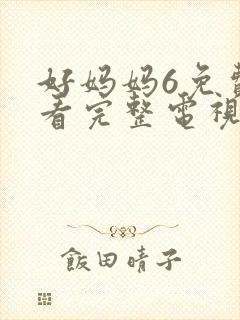 好妈妈6免費
看完整電視
飯田晴子